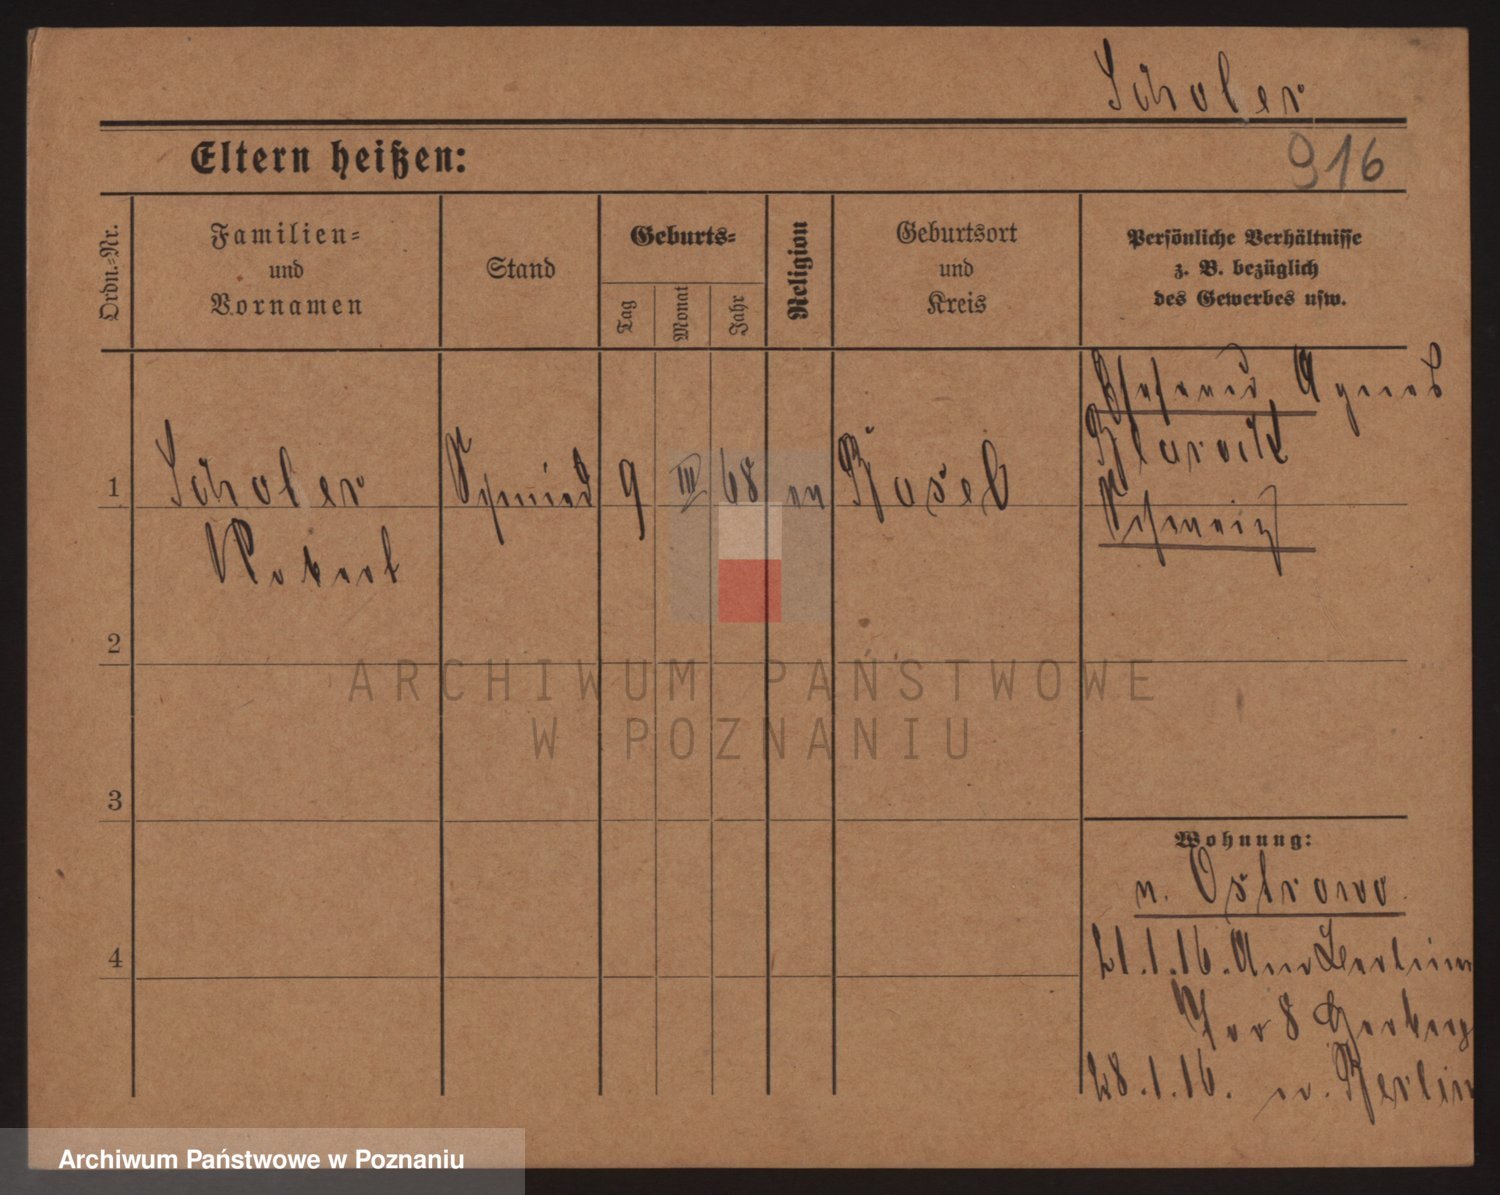 Scholer
916
Eltern heißen:
Ordn.=Nr.
Familien=
und
Vornamen
Stand
Geburts=
Tag
Monat
Jahr
Religion
Geburtsort
und
Kreis
Persönliche Verhältnisse
z. B. bezüglich
des Gewerbes usw.
1
Scholer
Robert
Schmied
9
III
68
Basel
Agnes
Schweiz
2
3
4
Wohnung:
n. Ostrowo.
21.1.16. Am Berliner
Tor 8 Herberge
28.1.16. n. Berlin
ARCHIWUM PAŃSTWOWE
W POZNANIU
Archiwum Państwowe w Poznaniu